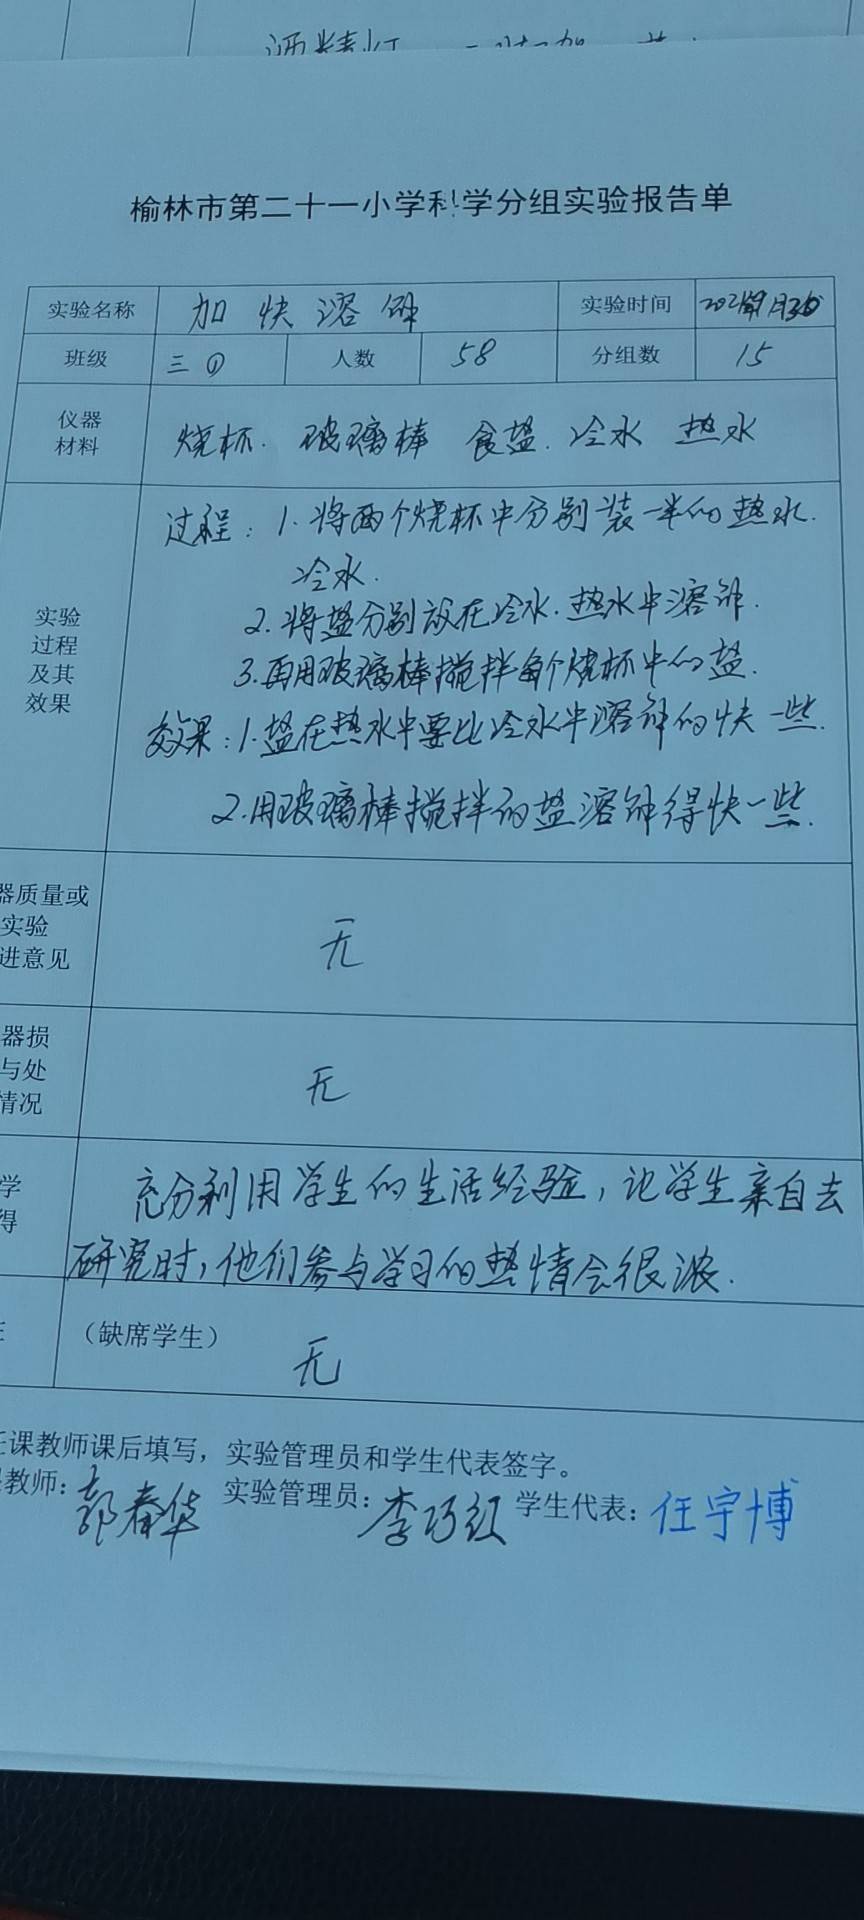 酒精灯
榆林市第二十一小学科学分组实验报告单
实验名称 加快溶解 实验时间
班级 三① 人数 58 分组数 15
仪器
材料
烧杯. 玻璃棒 食盐. 冷水 热水
实验
过程
及其
效果
过程：1.将两个烧杯中分别装一半的热水.
冷水.
2.将盐分别放在冷水.热水中溶解.
3.再用玻璃棒搅拌每个烧杯中的盐.
效果：1.盐在热水中要比冷水中溶解的快一些.
2.用玻璃棒搅拌的盐溶解得快一些.
器质量或
实验
进意见
无
器损
与处
情况
无
学
得
充分利用学生的生活经验，让学生亲自去
研究时，他们参与学习的热情会很浓.
（缺席学生）
无
任课教师课后填写，实验管理员和学生代表签字。
教师：郭春华 实验管理员：李巧红 学生代表：任宇博